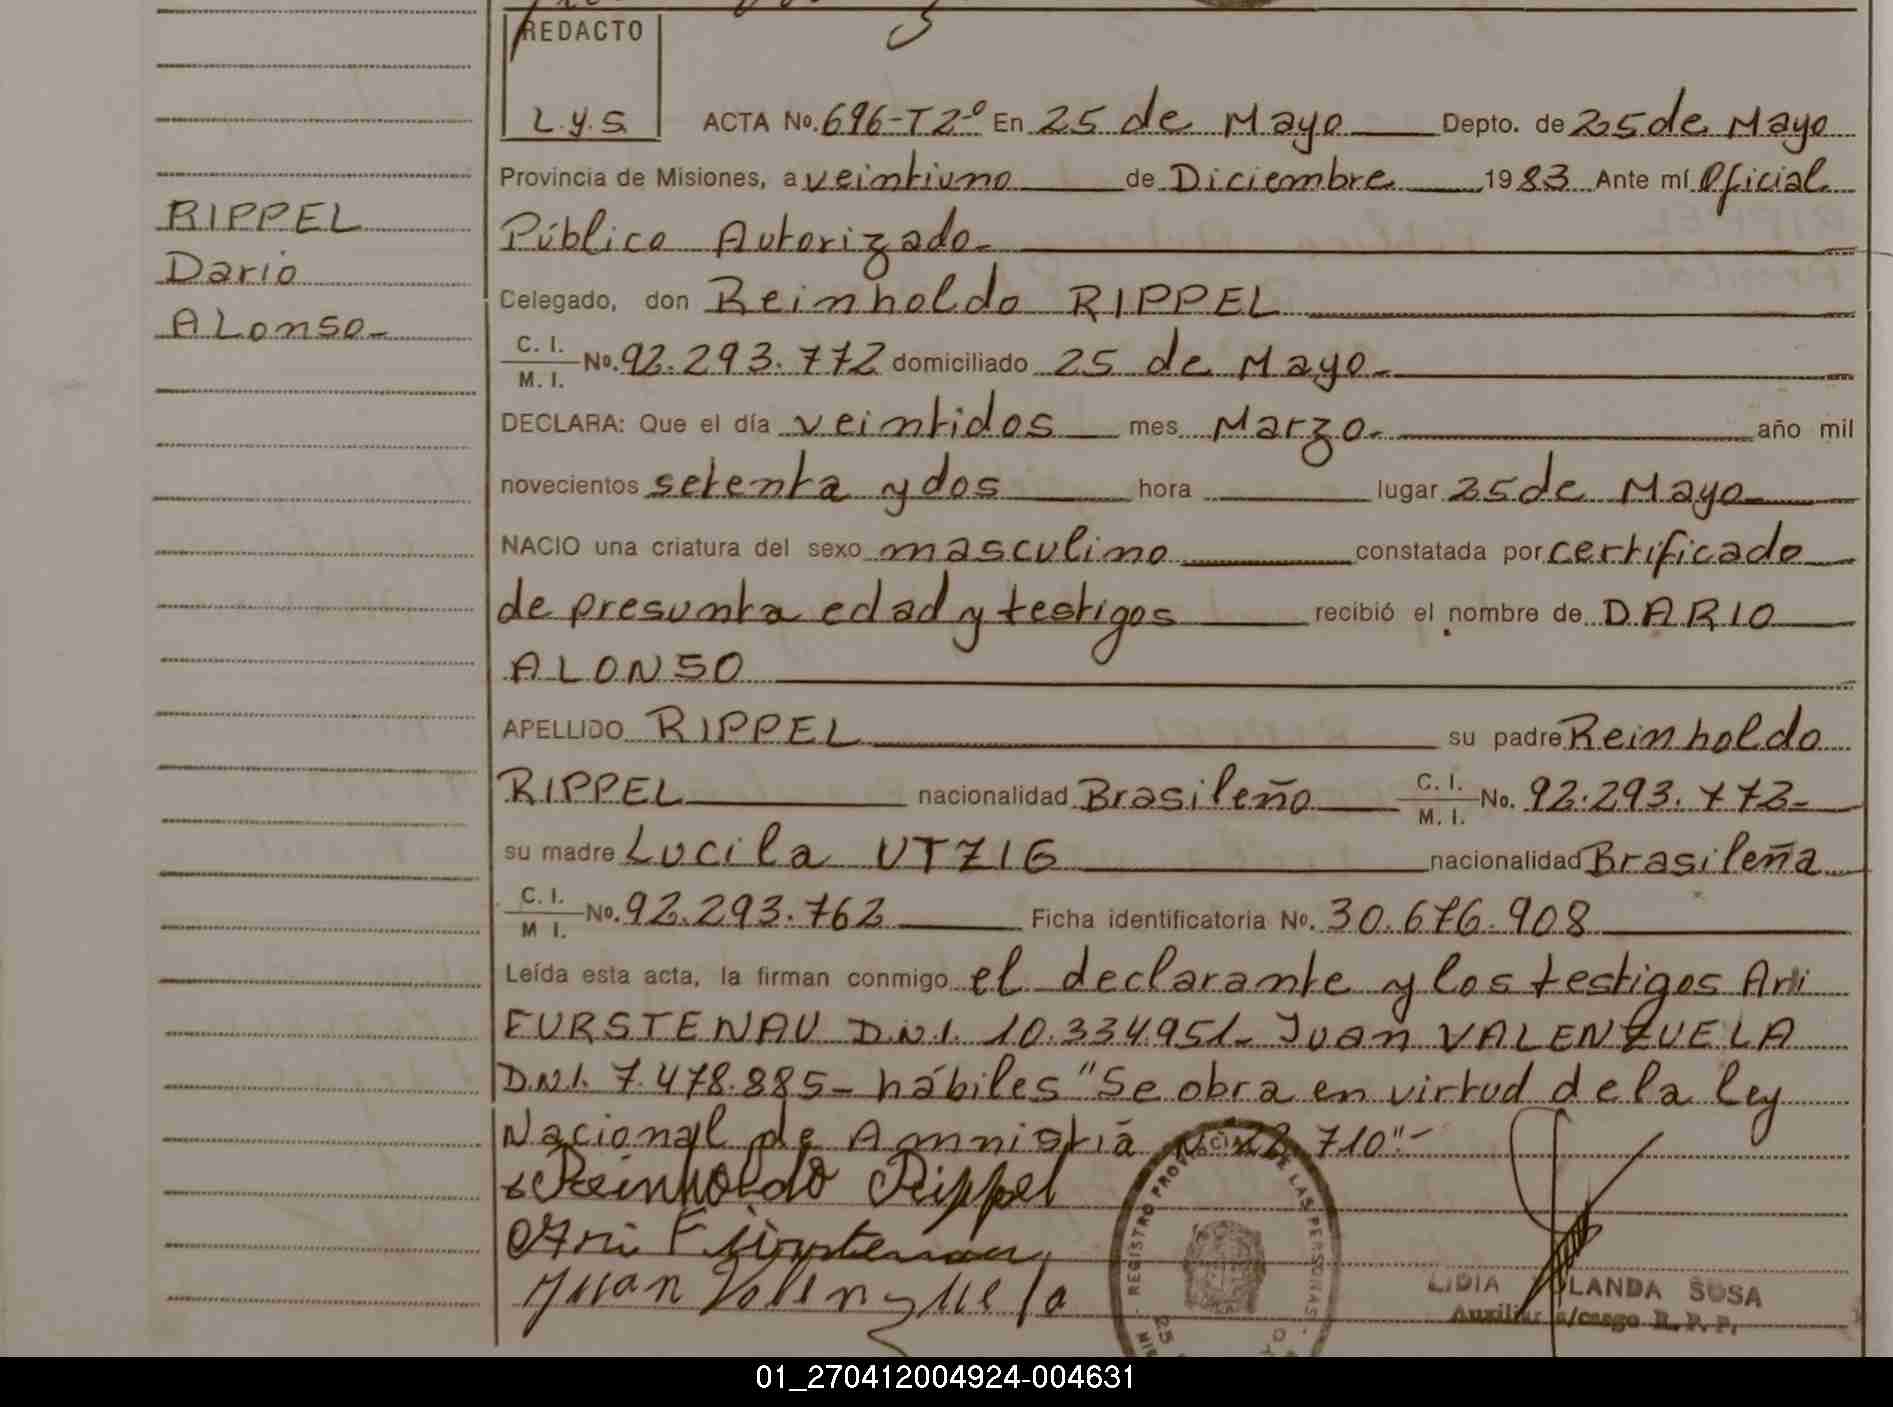 REDACTO
L.y.S.
ACTA No. 696-T2º En 25 de Mayo Depto. de 25 de Mayo
Provincia de Misiones, a veintiuno de Diciembre 1983 Ante mí Oficial
Público Autorizado.
Celegado, don Reinholdo RIPPEL
C. I.
M. I. No. 92.293.772 domiciliado 25 de Mayo.
DECLARA: Que el día veintidos mes Marzo. año mil
novecientos setenta y dos hora lugar 25 de Mayo
NACIO una criatura del sexo masculino constatada por certificado
de presunta edad y testigos recibió el nombre de DARIO
ALONSO
APELLIDO RIPPEL su padre Reinholdo
RIPPEL nacionalidad Brasileño C. I. M. I. No. 92.293.772-
su madre Lucila UTZIG nacionalidad Brasileña
C. I. M I. No. 92.293.762 Ficha identificatoria No. 30.676.908
Leída esta acta, la firman conmigo el declarante y los testigos Ari
FURSTENAU D.N.I. 10.334.951- Juan VALENZUELA
D.N.I. 7.478.885- hábiles "Se obra en virtud de la ley
Nacional de Amnistiá Nº 22.710"-
Reinholdo Rippel
Ari Fürstenau
Juan Valenzuela
RIPPEL
Dario
ALonso-
REGISTRO PROVINCIAL DE LAS PERSONAS
25
LIDIA YOLANDA SOSA
Auxiliar a/cargo R. P. P.
01_270412004924-004631